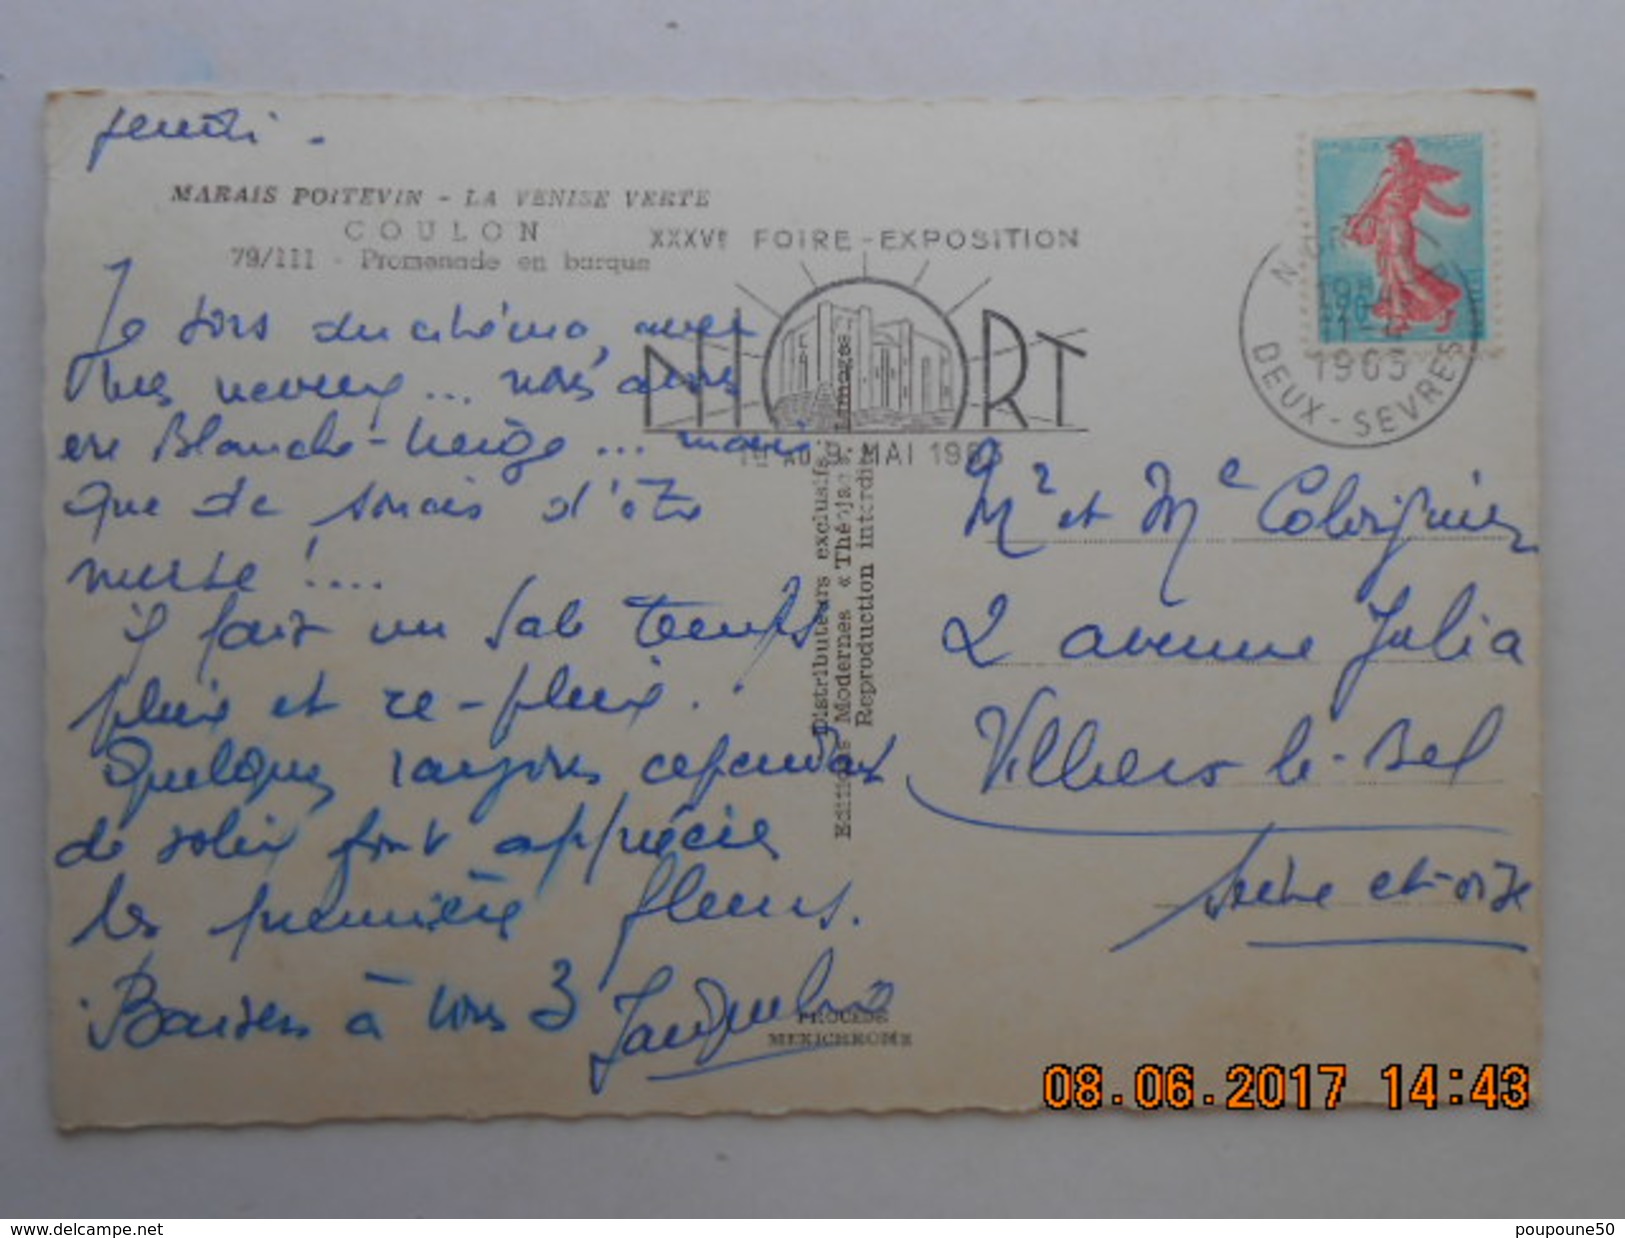 jeudi -
MARAIS POITEVIN - LA VENISE VERTE
COULON
79/III - Promenade en barque
XXXVe FOIRE-EXPOSITION
NIORT
1er AU 9 MAI 1965
DEUX-SEVRES
1965
Je sors du cinéma, avec
mes neveux ... nous avons
eu Blanche-Neige ... mais
que de soucis d'être
nurse !....
il fait un sale temps
pluie et re-pluie.
Quelques rayons cependant
de soleil font apprécier
les premières fleurs.
Baisers à vous 3 Jacqueline
Distributeurs exclusifs
Editions Modernes « Théojac » Limoges
Reproduction interdite
PROCEDE
MEXICHROME
Mr et Me
2 avenue Julia
Villiers le-Bel
Seine et-oise
08.06.2017 14:43
www.delcampe.net
poupoune50